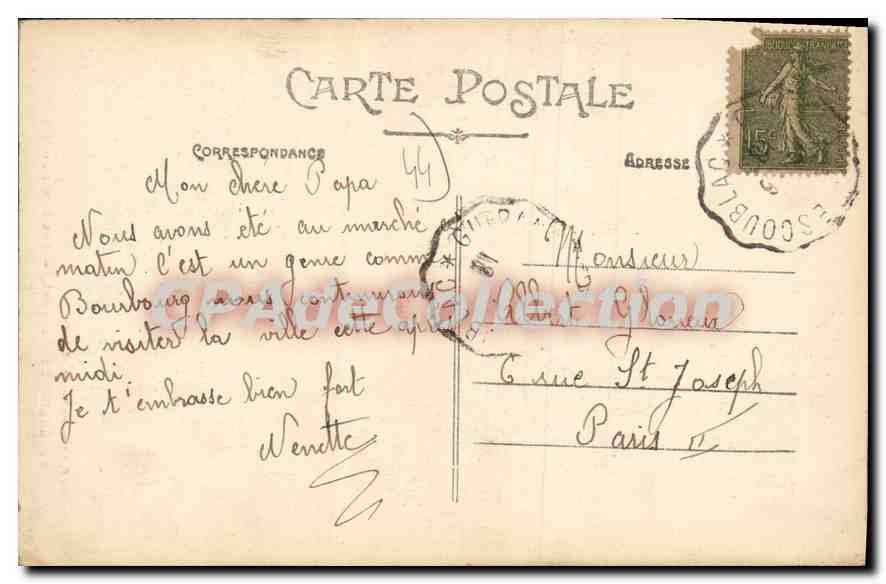 CARTE POSTALE
CORRESPONDANCE
ADRESSE
44
15c
Mon chere Papa
Nous avons été au marché ce
matin C'est un genre comme
Bourbourg nous continuerons
de visiter la ville cette apr
midi.
Je t'embrasse bien fort
Nenette
Monsieur
Albert
6 rue St Joseph
Paris II
ESCOUBLAC *
CPAdeCollection